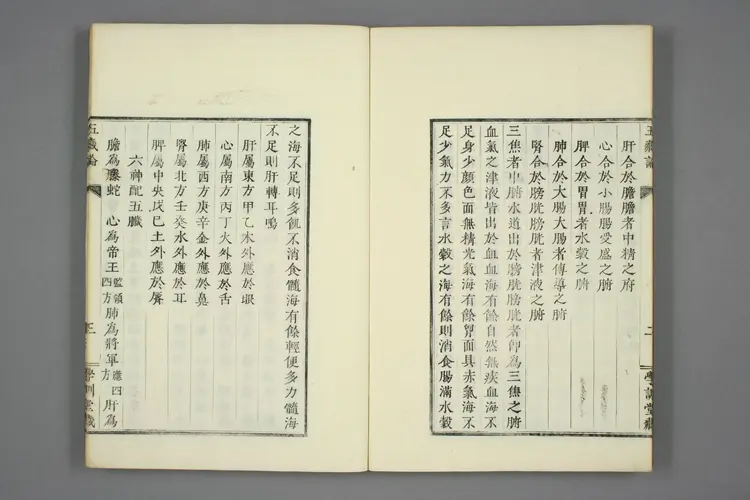 肝合於膽膽者中精之府
心合於小腸腸受盛之腑
脾合於胃胃者水穀之腑
肺合於大腸大腸者傳導之腑
腎合於膀胱膀胱者津液之腑
三焦者中腑水道出於膀胱膀胱者即為三焦之腑
血氣之津液皆出於血血海有餘自然無疾血海不
足身少顏色面無精光氣海有餘胷面具赤氣海不
足少氣力不多言水穀之海有餘則消食腸滿水穀
之海不足則多飢不消食髓海有餘輕便多力髓海
不足則肝轉耳鳴
肝屬東方甲乙木外應於眼
心屬南方丙丁火外應於舌
肺屬西方庚辛金外應於鼻
腎屬北方壬癸水外應於耳
脾屬中央戊巳土外應於脣
六神配五臟
膽為螣蛇 心為帝王監領四方肺為將軍應四方肝為
五藏論
二
五藏論
三